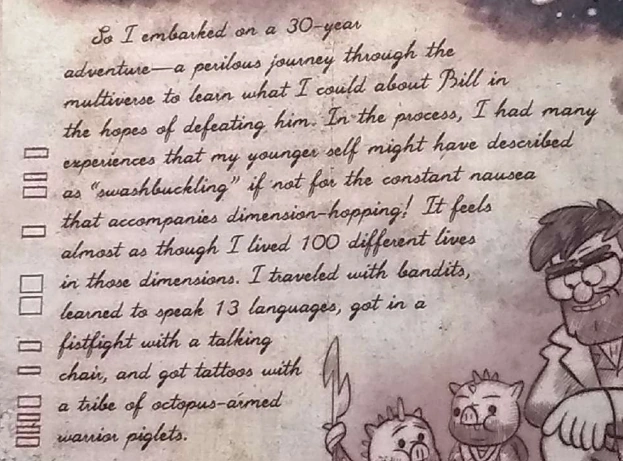 So I embarked on a 30-year
adventure—a perilous journey through the
multiverse to learn what I could about Bill in
the hopes of defeating him. In the process, I had many
experiences that my younger self might have described
as "swashbuckling" if not for the constant nausea
that accompanies dimension-hopping! It feels
almost as though I lived 100 different lives
in those dimensions. I traveled with bandits,
learned to speak 13 languages, got in a
fistfight with a talking
chair, and got tattoos with
a tribe of octopus-armed
warrior piglets.